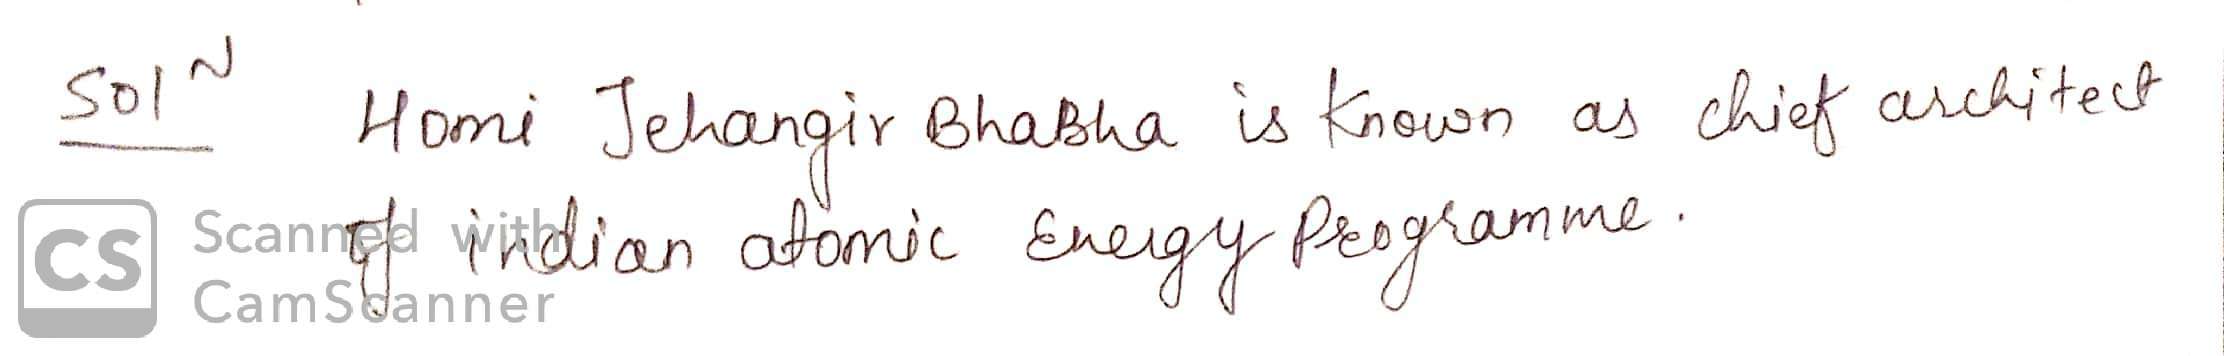 Solᴺ Homi Jehangir BhaBha is Known as chief architect
of indian atomic Energy Programme.
CS Scanned with
CamScanner